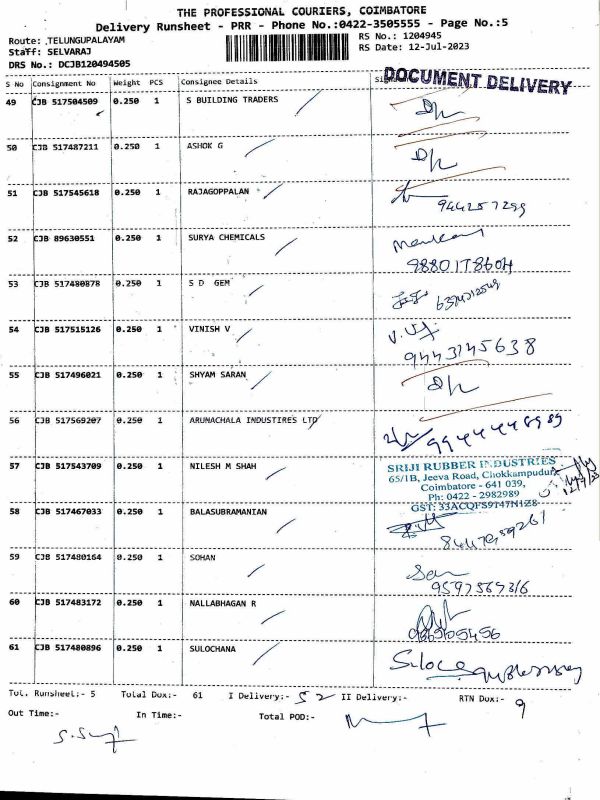 THE PROFESSIONAL COURIERS, COIMBATORE
Delivery Runsheet - PRR - Phone No.:0422-3505555 - Page No.:5
Route: TELUNGUPALAYAM
RS No.: 1204945
Staff: SELVARAJ
RS Date: 12-Jul-2023
DRS No.: DCJB120494505
DOCUMENT DELIVERY
S No Consignment No Weight PCS Consignee Details
49 CJB 517504509 0.250 1 S BUILDING TRADERS
50 CJB 517487211 0.250 1 ASHOK G
51 CJB 517545618 0.250 1 RAJAGOPPALAN
944257299
52 CJB 89630551 0.250 1 SURYA CHEMICALS
9880178604
53 CJB 517480878 0.250 1 S D GEM
54 CJB 517515126 0.250 1 VINISH V
9443145638
55 CJB 517496021 0.250 1 SHYAM SARAN
56 CJB 517569207 0.250 1 ARUNACHALA INDUSTIRES LTD
9944448989
57 CJB 517543709 0.250 1 NILESH M SHAH
SRIJI RUBBER INDUSTRIES
65/1B, Jeeva Road, Chokkampudur,
Coimbatore - 641 039,
Ph: 0422 - 2982989
GST: 33ACQFS9747N1Z8
58 CJB 517467033 0.250 1 BALASUBRAMANIAN
59 CJB 517480164 0.250 1 SOHAN
9597567316
60 CJB 517483172 0.250 1 NALLABHAGAN R
61 CJB 517480896 0.250 1 SULOCHANA
Tot. Runsheet:- 5 Total Dox:- 61 I Delivery:- 52 II Delivery:- RTN Dox:- 9
Out Time:- In Time:- Total POD:-